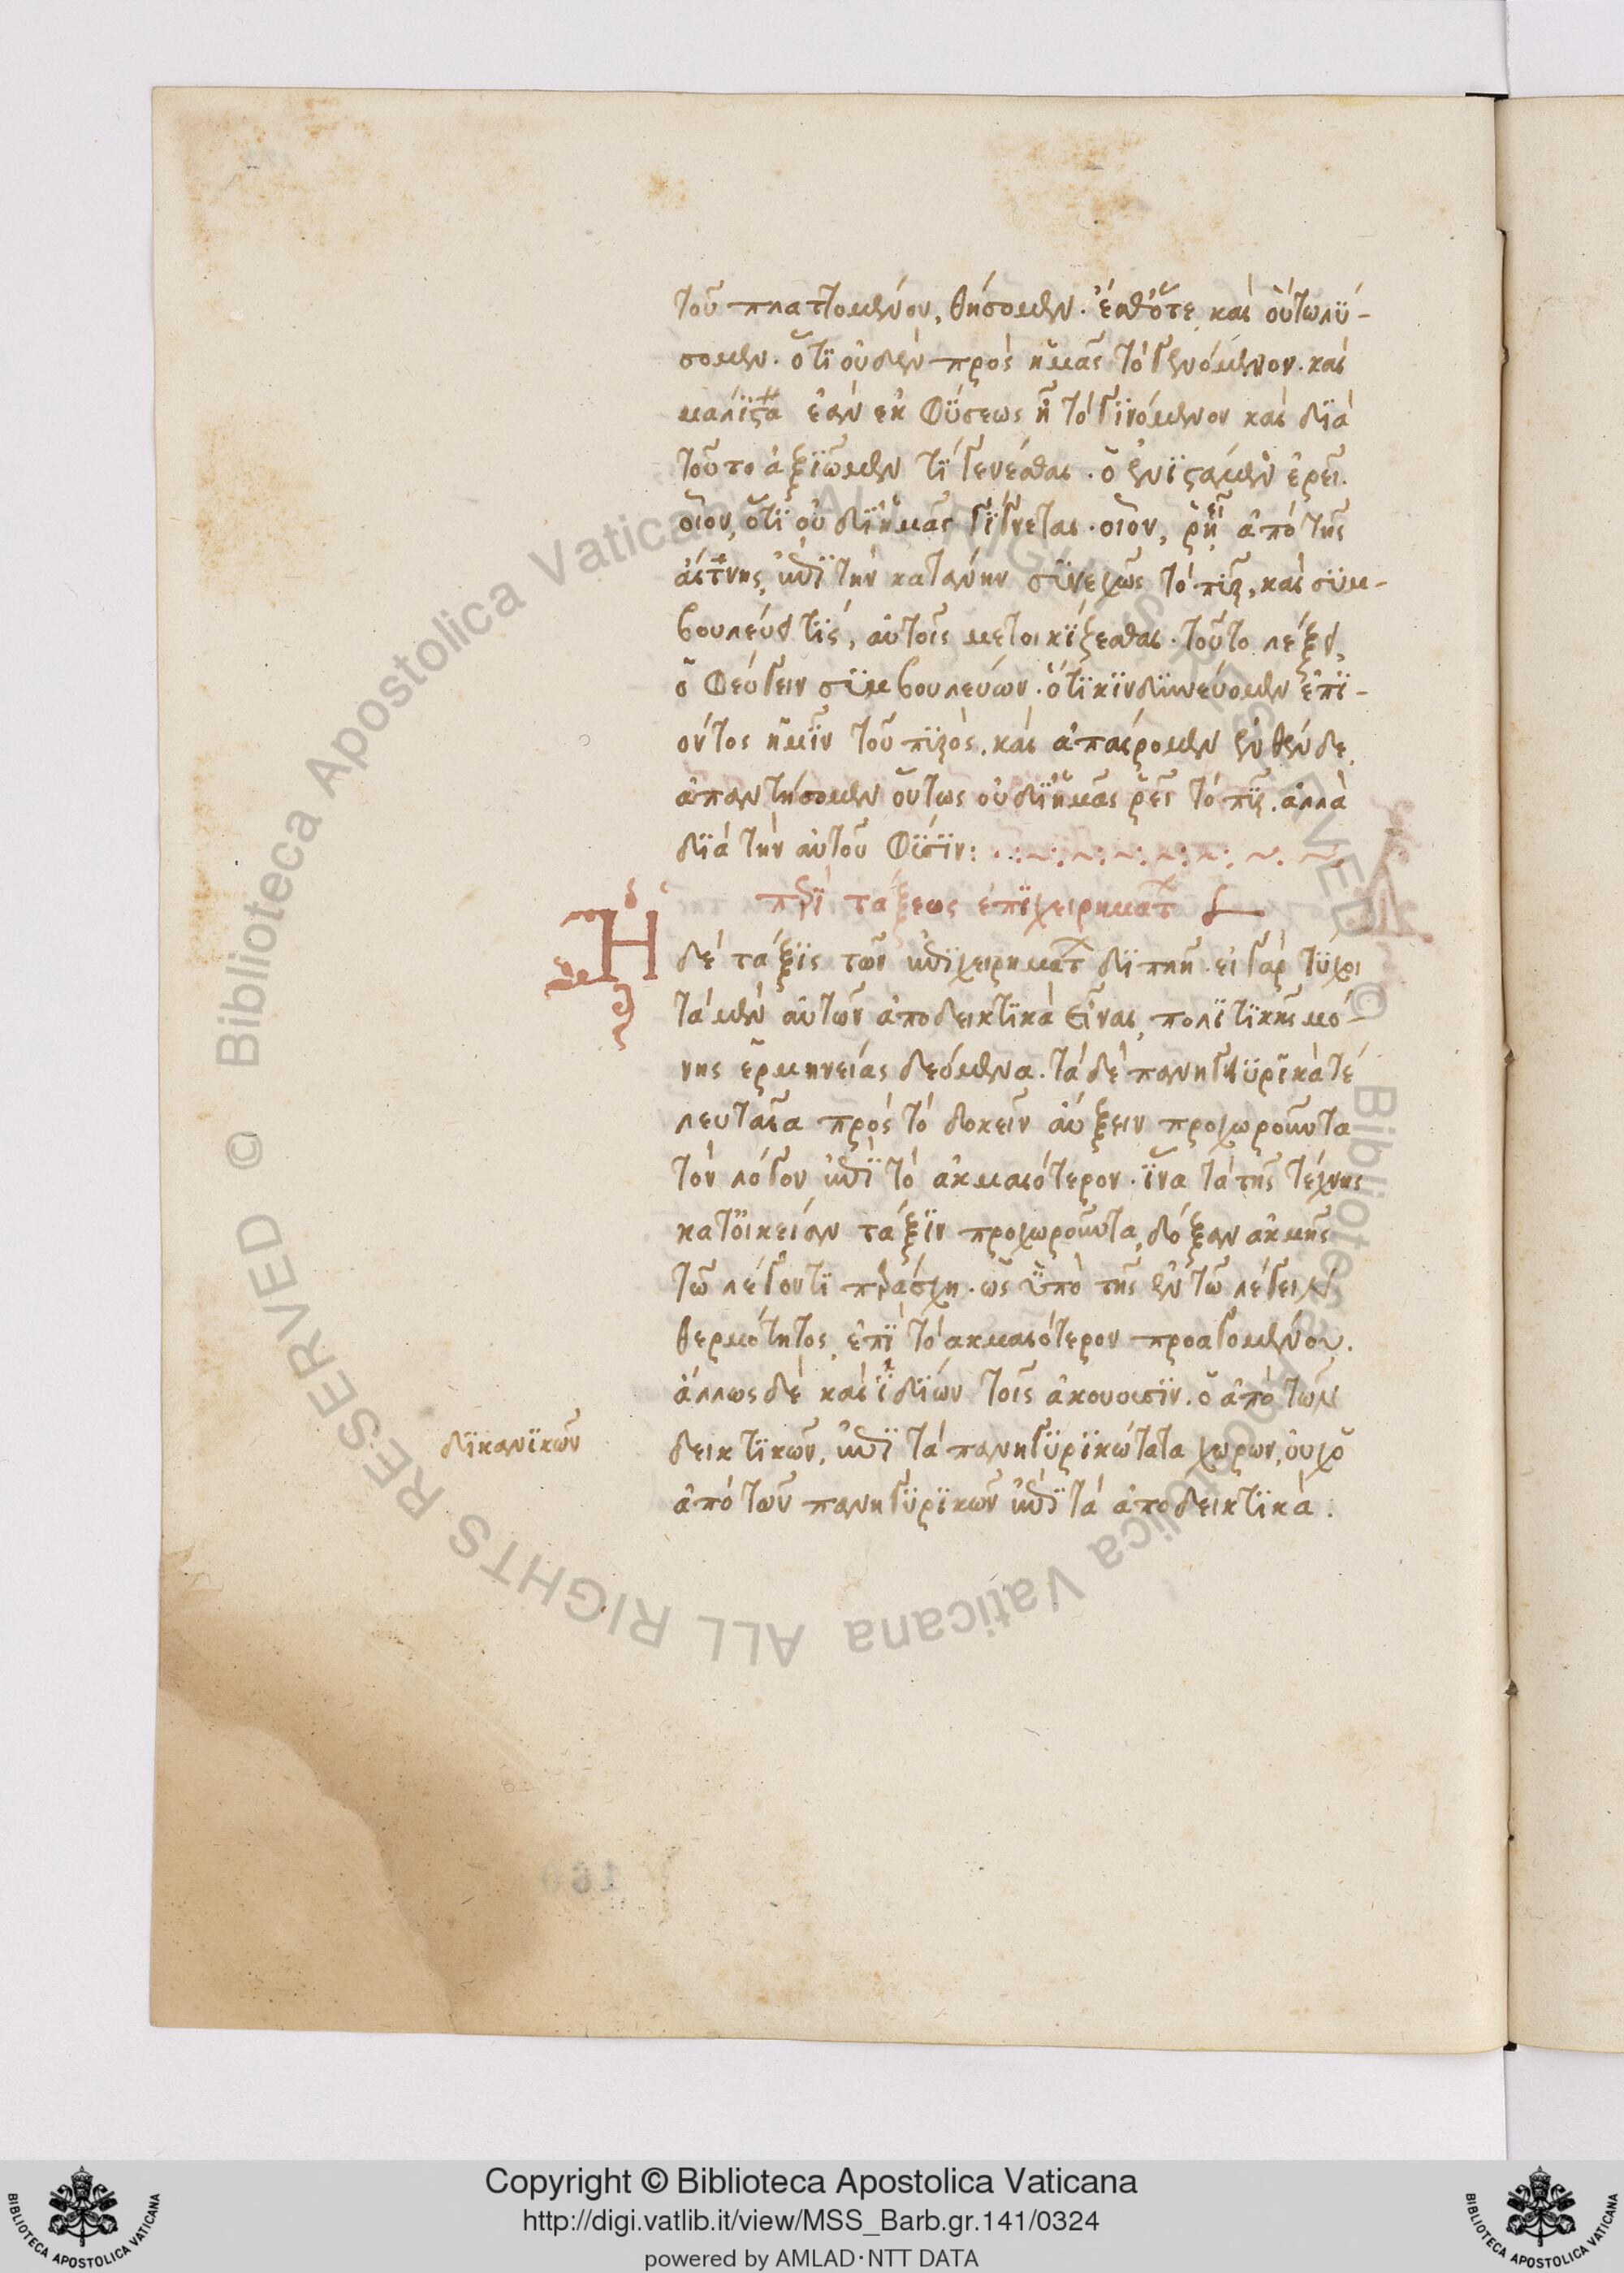 τοῦ πλαττομένου, θήσομεν. ἔσθ' ὅτε καὶ οὕτω λύ-
σομεν. ὅτι οὐδὲν πρὸς ἡμᾶς τὸ γενόμενον. καὶ
μάλιστα ἐὰν ἐκ φύσεως ἦ τὸ γινόμενον καὶ διὰ
τοῦτο ἀξιῶμεν τί γενέσθαι. ὁ ἐνιστάμενος ἐρεῖ.
οἷον, ὅτι οὐ δι' ἡμᾶς γίγνεται. οἷον, ῥεῖ ἀπὸ τῆς
αἴτνης, ἐπὶ τὴν κατάνην συνεχῶς τὸ πῦρ, καὶ συμ-
βουλεύει τίς, αὐτοῖς μετοικίζεσθαι. τοῦτο λέξει,
ὁ φεύγειν συμβουλεύων. ὅτι κινδυνεύομεν ἐπι-
όντος ἡμῖν τοῦ πυρός. καὶ ἀπαίρομεν ἐνθένδε,
ἀπαντήσομεν οὕτως οὐ δι' ἡμᾶς ῥεῖ τὸ πῦρ. ἀλλὰ
διὰ τὴν αὐτοῦ φύσιν:
περὶ τάξεως ἐπιχειρημάτων
Ἡ δὲ τάξις τῶν ἐπιχειρημάτων διττὴ. εἰ γὰρ τύχοι
τὰ μὲν αὐτῶν ἀποδεικτικὰ εἶναι, πολιτικῆς μό-
νης ἑρμηνείας δεόμενα. τὰ δὲ πανηγυρικὰ τε-
λευταῖα πρὸς τὸ δοκεῖν αὔξειν προχωροῦντα
τὸν λόγον ἐπὶ τὸ ἀκμαιότερον. ἵνα τὰ τῆς τέχνης
κατ' οἰκείαν τάξιν προχωροῦντα, δόξαν ἀκμῆς
τῶ λέγοντι παράσχη. ὡς ὑπὸ τῆς ἐν τῶ λέγειν
θερμότητος, ἐπὶ τὸ ἀκμαιότερον προαγομένου.
ἄλλως δὲ καὶ ἡδίων τοῖς ἀκούουσιν. ὁ ἀπὸ τῶν
δικανικῶν
δεικτικῶν, ἐπὶ τὰ πανηγυρικώτατα χωρῶν, οὐχ ὁ
ἀπὸ τῶν πανηγυρικῶν ἐπὶ τὰ ἀποδεικτικά:
Copyright © Biblioteca Apostolica Vaticana
http://digi.vatlib.it/view/MSS_Barb.gr.141/0324
powered by AMLAD·NTT DATA
BIBLIOTECA APOSTOLICA VATICANA
BIBLIOTECA APOSTOLICA VATICANA